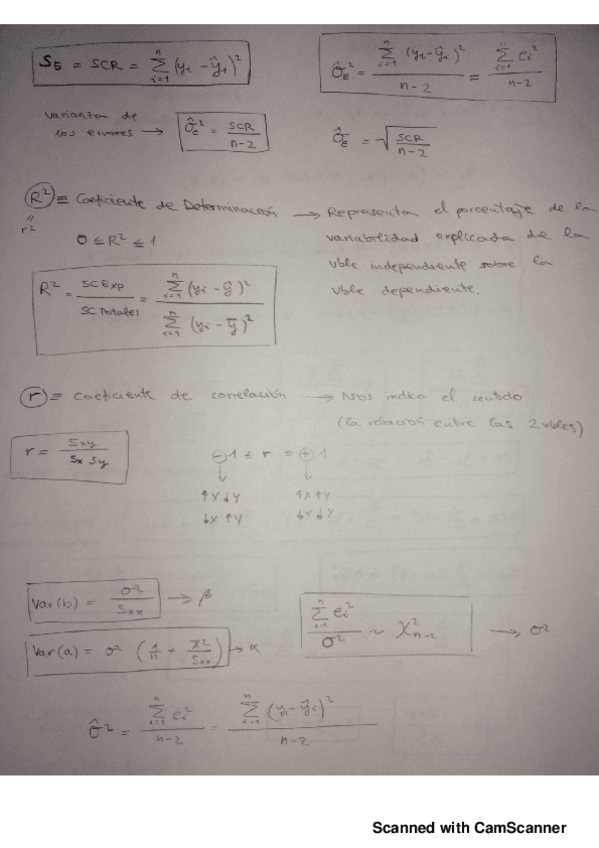 S_E = SCR = Σ_{i=1}^{n} (y_i - ŷ_i)²
σ̂_E² = Σ_{i=1}^{n} (y_i - ŷ_i)² / n-2 = Σ_{i=1}^{n} e_i² / n-2
varianza de
los errores → σ̂_E² = SCR / n-2
σ̂_E = √(SCR / n-2)
R² ≡ Coeficiente de Determinación → Representa el porcentaje de la
"
r²
0 ≤ R² ≤ 1
variabilidad explicada de la
vble independiente sobre la
vble dependiente.
R² = SCExp / SCTotales = Σ_{i=1}^{n} (ŷ_i - ȳ)² / Σ_{i=1}^{n} (y_i - ȳ)²
r ≡ Coeficiente de correlación → Nos indica el sentido
(la relación entre las 2 vbles)
r = Sxy / Sx Sy
-1 ≤ r ≤ +1
↓ ↓
↑x↓y ↑x↑y
↓x↑y ↓x↓y
Var(b) = σ² / Sxx → β
Σ_{i=1}^{n} e_i² / σ² ~ χ²_{n-2} → σ²
Var(a) = σ² (1/n + x̄²/Sxx) → α
σ̂² = Σ_{i=1}^{n} e_i² / n-2 = Σ_{i=1}^{n} (y_i - ŷ_i)² / n-2
Scanned with CamScanner